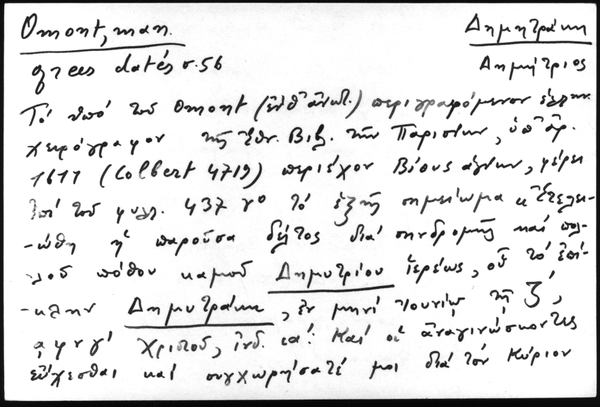 Omont, man. Δημητράκη
grecs datés σ. 56 Δημήτριος
Τό ὑπό τοῦ Omont (ἐνθ' ἀνωτ.) περιγραφόμενον ἑλλην.
χειρόγραφον τῆς Ἐθν. Βιβ. τῶν Παρισίων, ὑπ' ἀρ.
1611 (Colbert 4719) περιέχον Βίους ἁγίων, φέρει
ἐπί τοῦ φυλλ. 437 ro τό ἑξῆς σημείωμα «Ἐτελει-
-ώθη ἡ παροῦσα δέλτος διά συνδρομῆς καί πολ-
-λοῦ πόθου καμοῦ Δημητρίου ἱερέως, οὗ τό ἐπί-
-κλην Δημητράκη, ἐν μηνί Ἰουνίῳ τῇ ζ',
αφνγ' Χριστοῦ, ἰνδ. ια'. Καί οἱ ἀναγινώσκοντες
εὔχεσθαι καί συγχωρήσατέ μοι διά τόν Κύριον